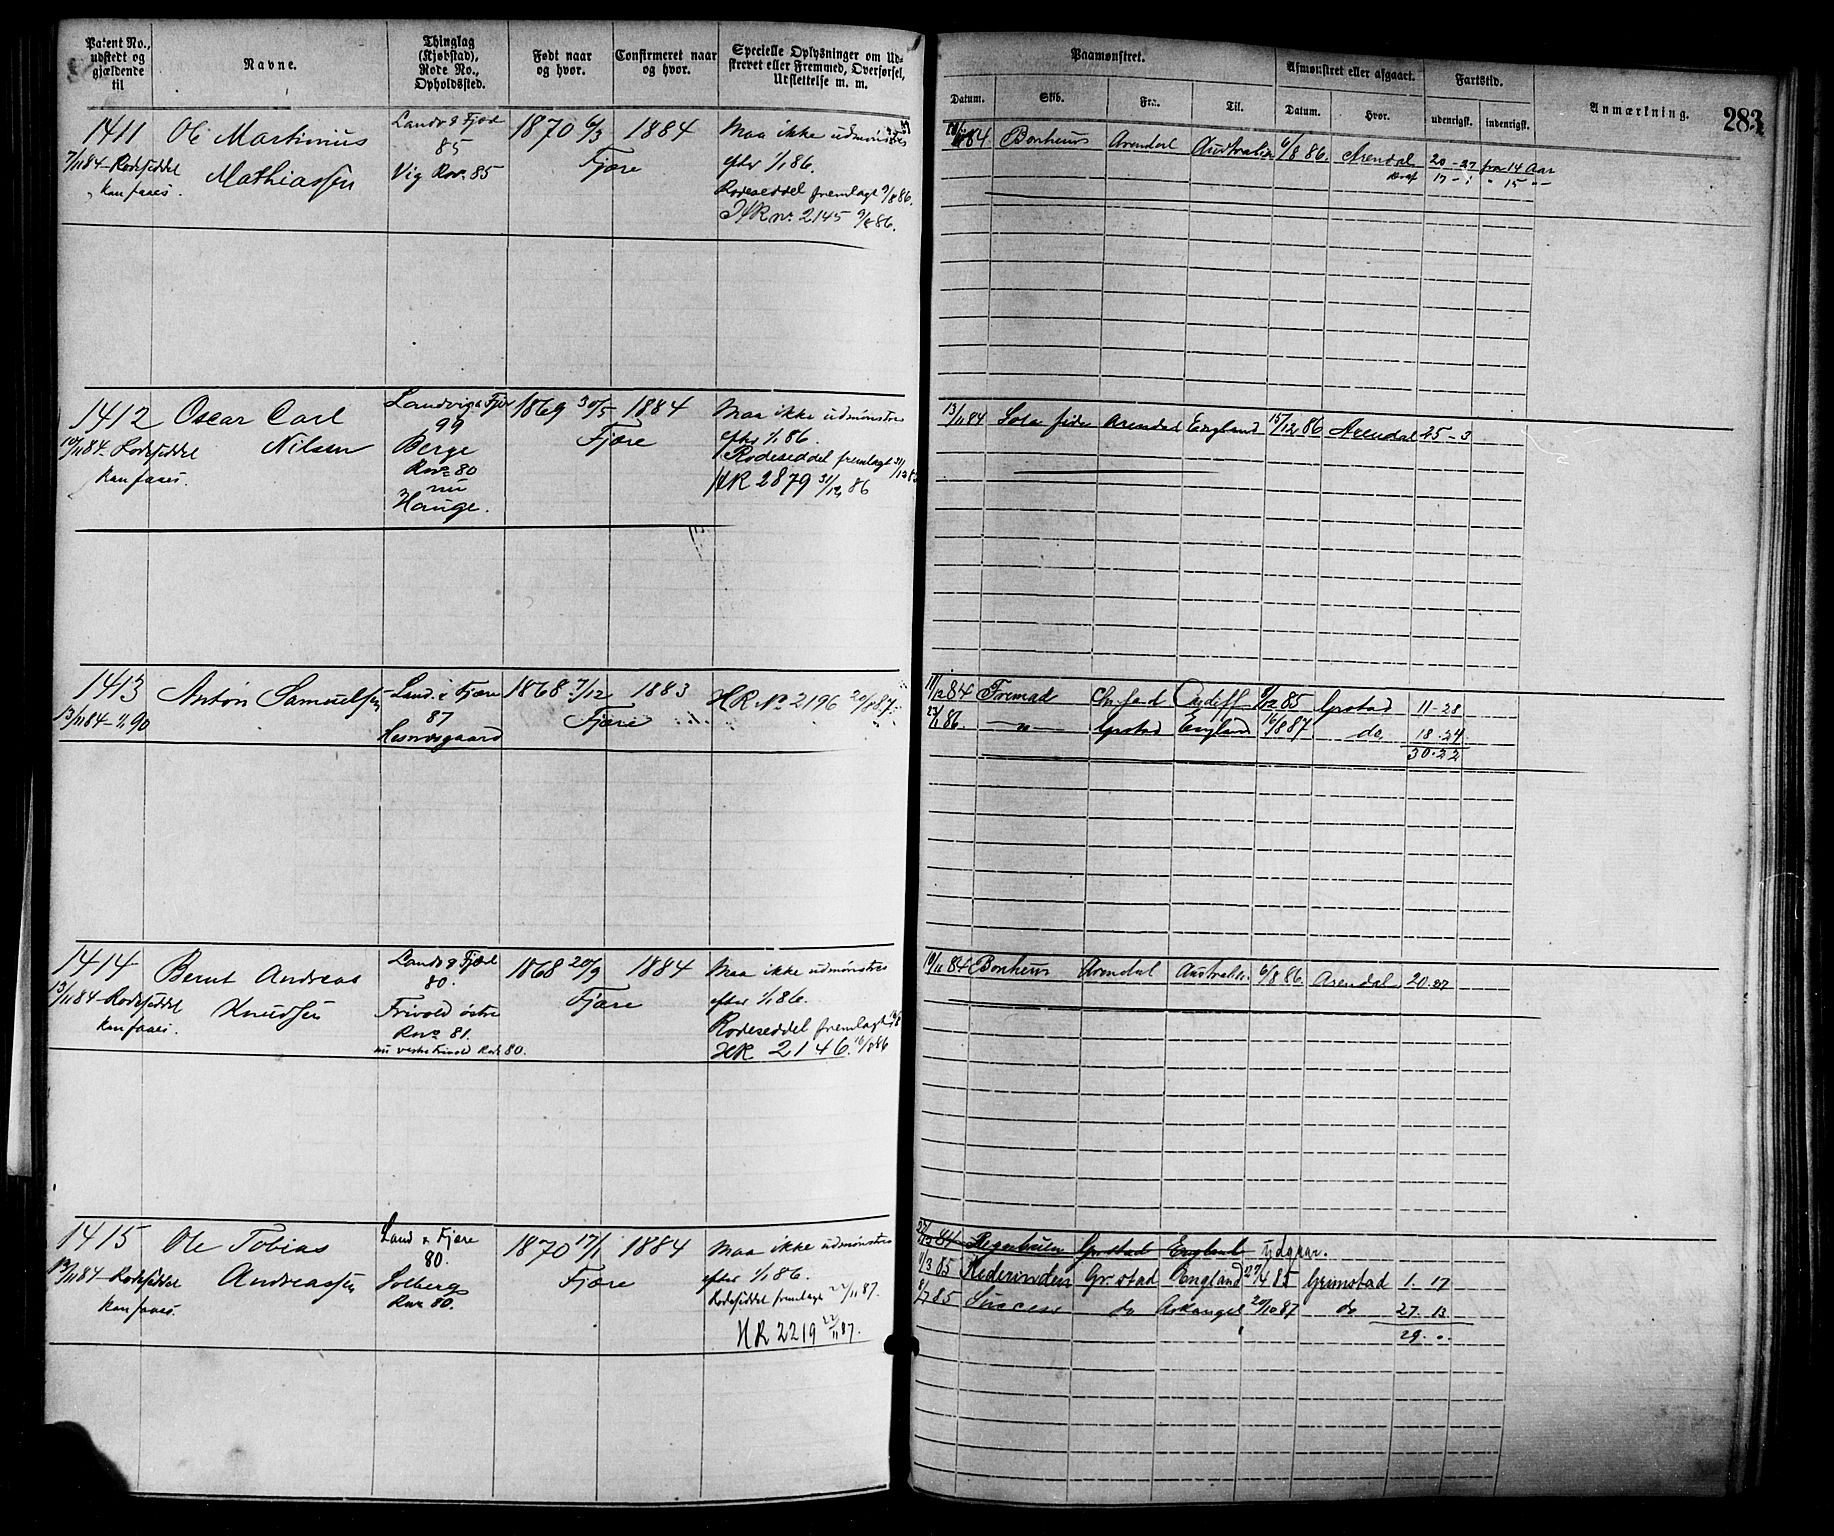 Patent No., udstedt og gjældende til
Navne.
Thinglag (Kjøbstad), Rode No., Opholdssted.
Født naar og hvor.
Confirmeret naar og hvor.
Specielle Oplysninger om Udskrevet eller Fremmed, Overførsel, Udslettelse m. m.
Paamønstret.
Afmønstret eller afgaaet.
Fartstid.
Anmærkning.
283
Datum.
Skib.
Fra.
Til.
Datum.
Hvor.
udenrigsk.
indenrigsk.
1411
7/11 84 - Rodeseddel
kan faaes.
Ole Martinius
Mathiassen
Landv & Fjære
85
Vig Rno. 85
1870 6/3
Fjære
1884
Maa ikke udmønstres
efter 1/1 86.
Rodeseddel fremlagt 9/8 86.
HR no. 2145 9/8 86.
84 Bonheur Arendal Australien 6/8 86. Arendal 20 - 27 fra 14 Aar
17 - " 15 "
1412
10/11 84 - Rodeseddel
kan faaes.
Oscar Carl
Nilsen
Landvig & Fjære
99
Berge
Rno. 80
nu
Hauge.
1869 30/5
Fjære
1884
Maa ikke udmønstres
efter 1/1 86.
Rodeseddel fremlagt 31/12 86
HR 2879 31/12 86
13/11 84 Sola fide Arendal England 15/12 86 Arendal 25 - 3
1413
13/11 84 - 90
Anton Samuelsen
Land. & Fjære
87
Hesnæsgaard
1868 7/12
Fjære
1883
HR No 2196 20/8 87
11/12 84 Fremad Chr.stad Cardiff 9/12 85 Grstad 11-28
23/1 86. -"- Grstad England 16/8 87 do 18.24
30.22
1414
13/11 84 - Rodeseddel
kan faaes.
Bernt Andreas
Knudsen
Landv & Fjære
80.
Frivold østre
Rno. 81.
nu vestre Frivold Rno. 80.
1868 20/9
Fjære
1884
Maa ikke udmønstres
efter 1/1 86.
Rodeseddel fremlagt
HR 2146. 16/8 86
10/11 84 Bonheur Arendal Australien 6/8 86. Arendal 20.27
1415
13/11 84 - Rodeseddel
kan faaes.
Ole Tobias
Andreassen
Land & Fjære
80.
Solberg
Rno. 80.
1870 17/1
Fjære
1884
Maa ikke udmønstres
efter 1/1 86.
Rodeseddel fremlagt 22/11 87.
HR 2219 22/11 87.
27/12 84 Grstad England udgaar.
11/3 85 Rederinden Gr.stad England 27/4 85 Grimstad 1. 17
8/7 85 Success do Arkangel 20/10 87 do 27. 13
29. "